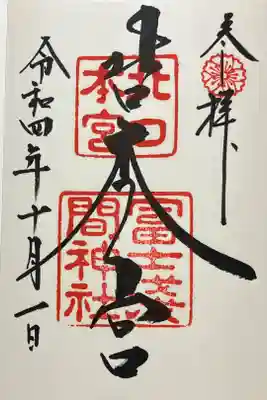 奉拝
北口本宮
北口
本宮
冨士淺
間神社
令和四年十月一日